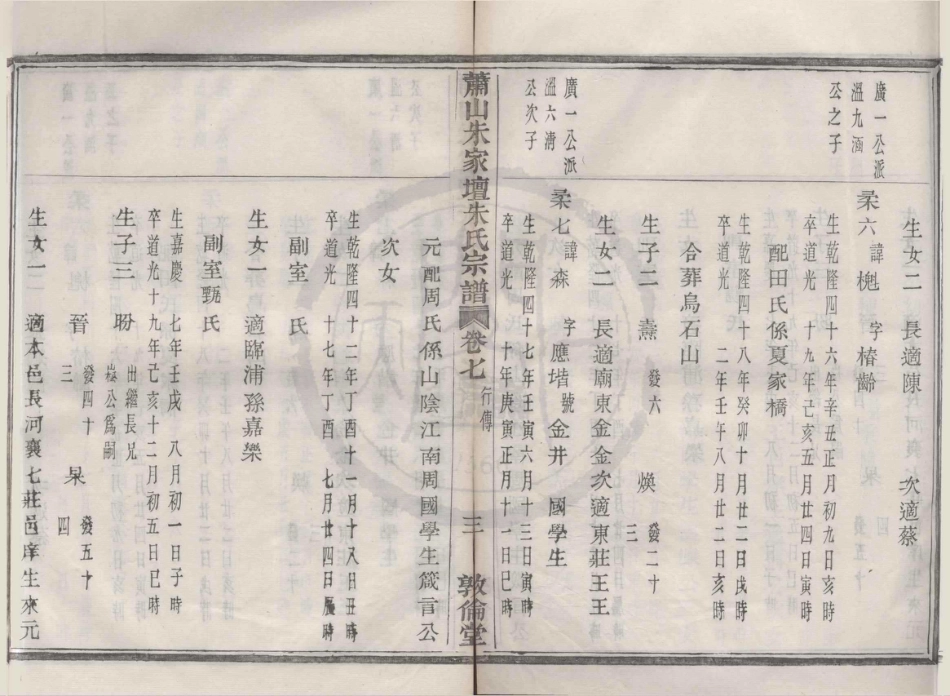 生女二 長適陳 次適蔡
廣一公派
溫九涵
公之子
柔六 諱樾 字椿齡
生乾隆四十六年辛丑正月初九日亥時
卒道光 十九年己亥五月廿四日寅時
配田氏係夏家橋
生乾隆四十八年癸卯十月廿二日戌時
卒道光 二年壬午八月廿二日亥時
合葬烏石山
生子二 燾 發六三 煥 發二十
生女二 長適廟東金金次適東莊王王
廣一公派
溫六淯
公次子
柔七 諱森 字應堦號金井 國學生
生乾隆四十七年壬寅六月十三日寅時
卒道光 十年庚寅正月十一日巳時
蕭山朱家壇朱氏宗譜 卷七 行傳 三 敦倫堂
元配周氏係山陰江南周國學生箴言公
次女
生乾隆四十二年丁酉十一月十八日丑時
卒道光 十七年丁酉 七月廿四日 時
副室 氏
生女一 適臨浦孫嘉樂
副室 氏
生嘉慶 七年壬戌 八月初一日子時
卒道光十九年己亥十二月初五日巳時
生子三 昐 出繼長兄 公為嗣 晉 發四十三 杲 發五十四
生女一 適本邑長河襄七莊邑庠生來元